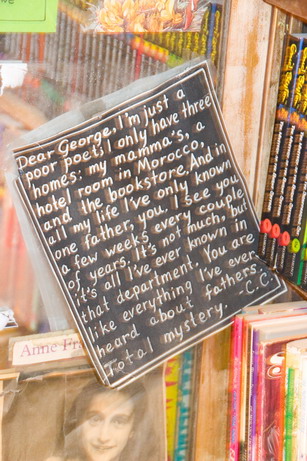 Dear George, I'm just a
poor poet. I only have three
homes: my mamma's, a
hotel room in Morocco,
and the bookstore. And in
all my life I've only known
one father, you. I see you
a few weeks every couple
of years, it's not much, but
it's all I've ever known in
that department. You are
like everything I've ever
heard about fathers.
Total mystery. -C.C.
Anne Fra